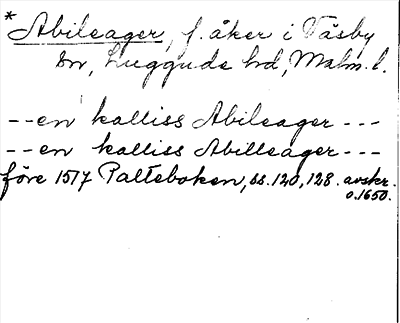 * Abileager, f. åker i Väsby
sn, Luggude hd, Malm. l.
--en kalliss Abileager ---
--en kalliss Abilleager ---
före 1517 Palteboken, ss. 120, 128. avskr.
o. 1650.